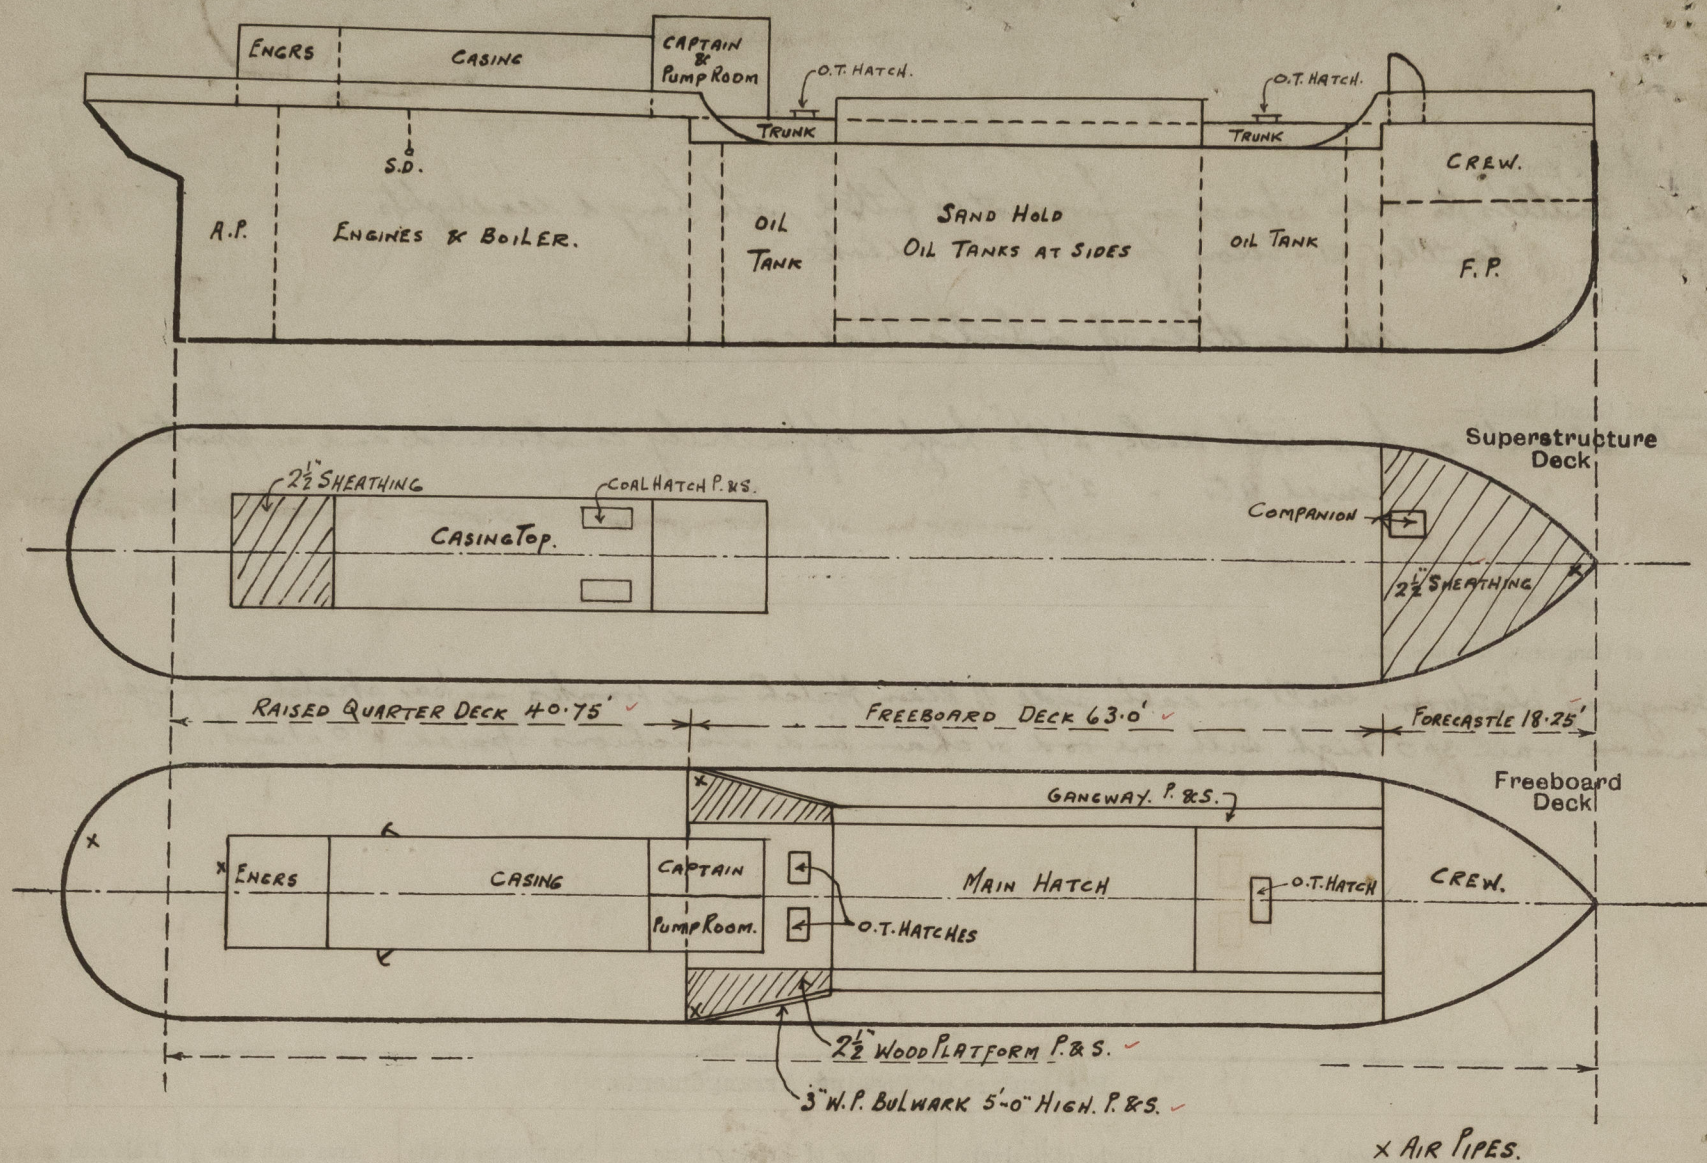 ENGRS
CASING
CAPTAIN
&
PUMP ROOM
O.T. HATCH.
O.T. HATCH.
TRUNK
TRUNK
S.D.
CREW.
A.P.
ENGINES & BOILER.
OIL
TANK
SAND HOLD
OIL TANKS AT SIDES
OIL TANK
F.P.
Superstructure
Deck
2½" SHEATHING
COAL HATCH P. & S.
CASING TOP.
COMPANION
2½" SHEATHING
RAISED QUARTER DECK 40.75'
FREEBOARD DECK 63.0'
FORECASTLE 18.25'
Freeboard
Deck
GANGWAY. P. & S.
ENGRS
CASING
CAPTAIN
PUMP ROOM.
MAIN HATCH
O.T. HATCH
CREW.
O.T. HATCHES
2½" WOOD PLATFORM P. & S.
3" W.P. BULWARK 5'-0" HIGH. P. & S.
x AIR PIPES.